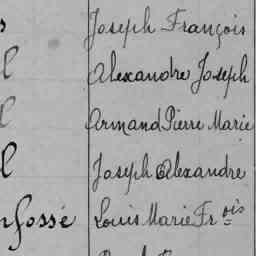 Joseph François
Alexandre Joseph
Armand Pierre Marie
Joseph Alexandre
Louis Marie Fr ois